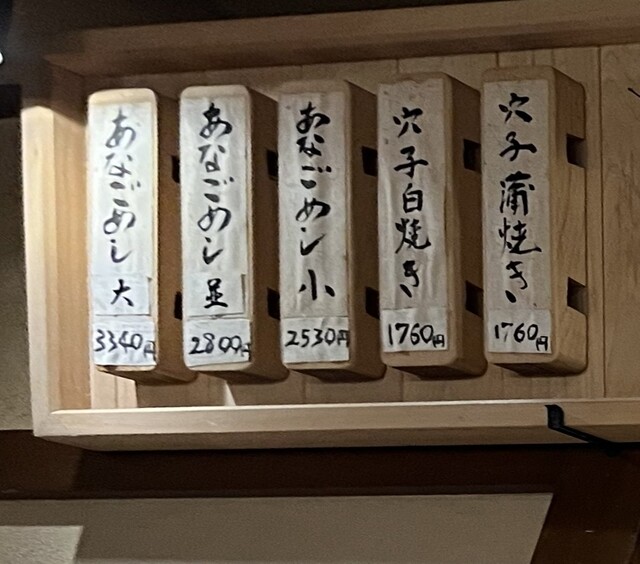 穴子蒲焼き
1760円
穴子白焼き
1760円
あなごめし 小
2530円
あなごめし 並
2800円
あなごめし 大
3340円